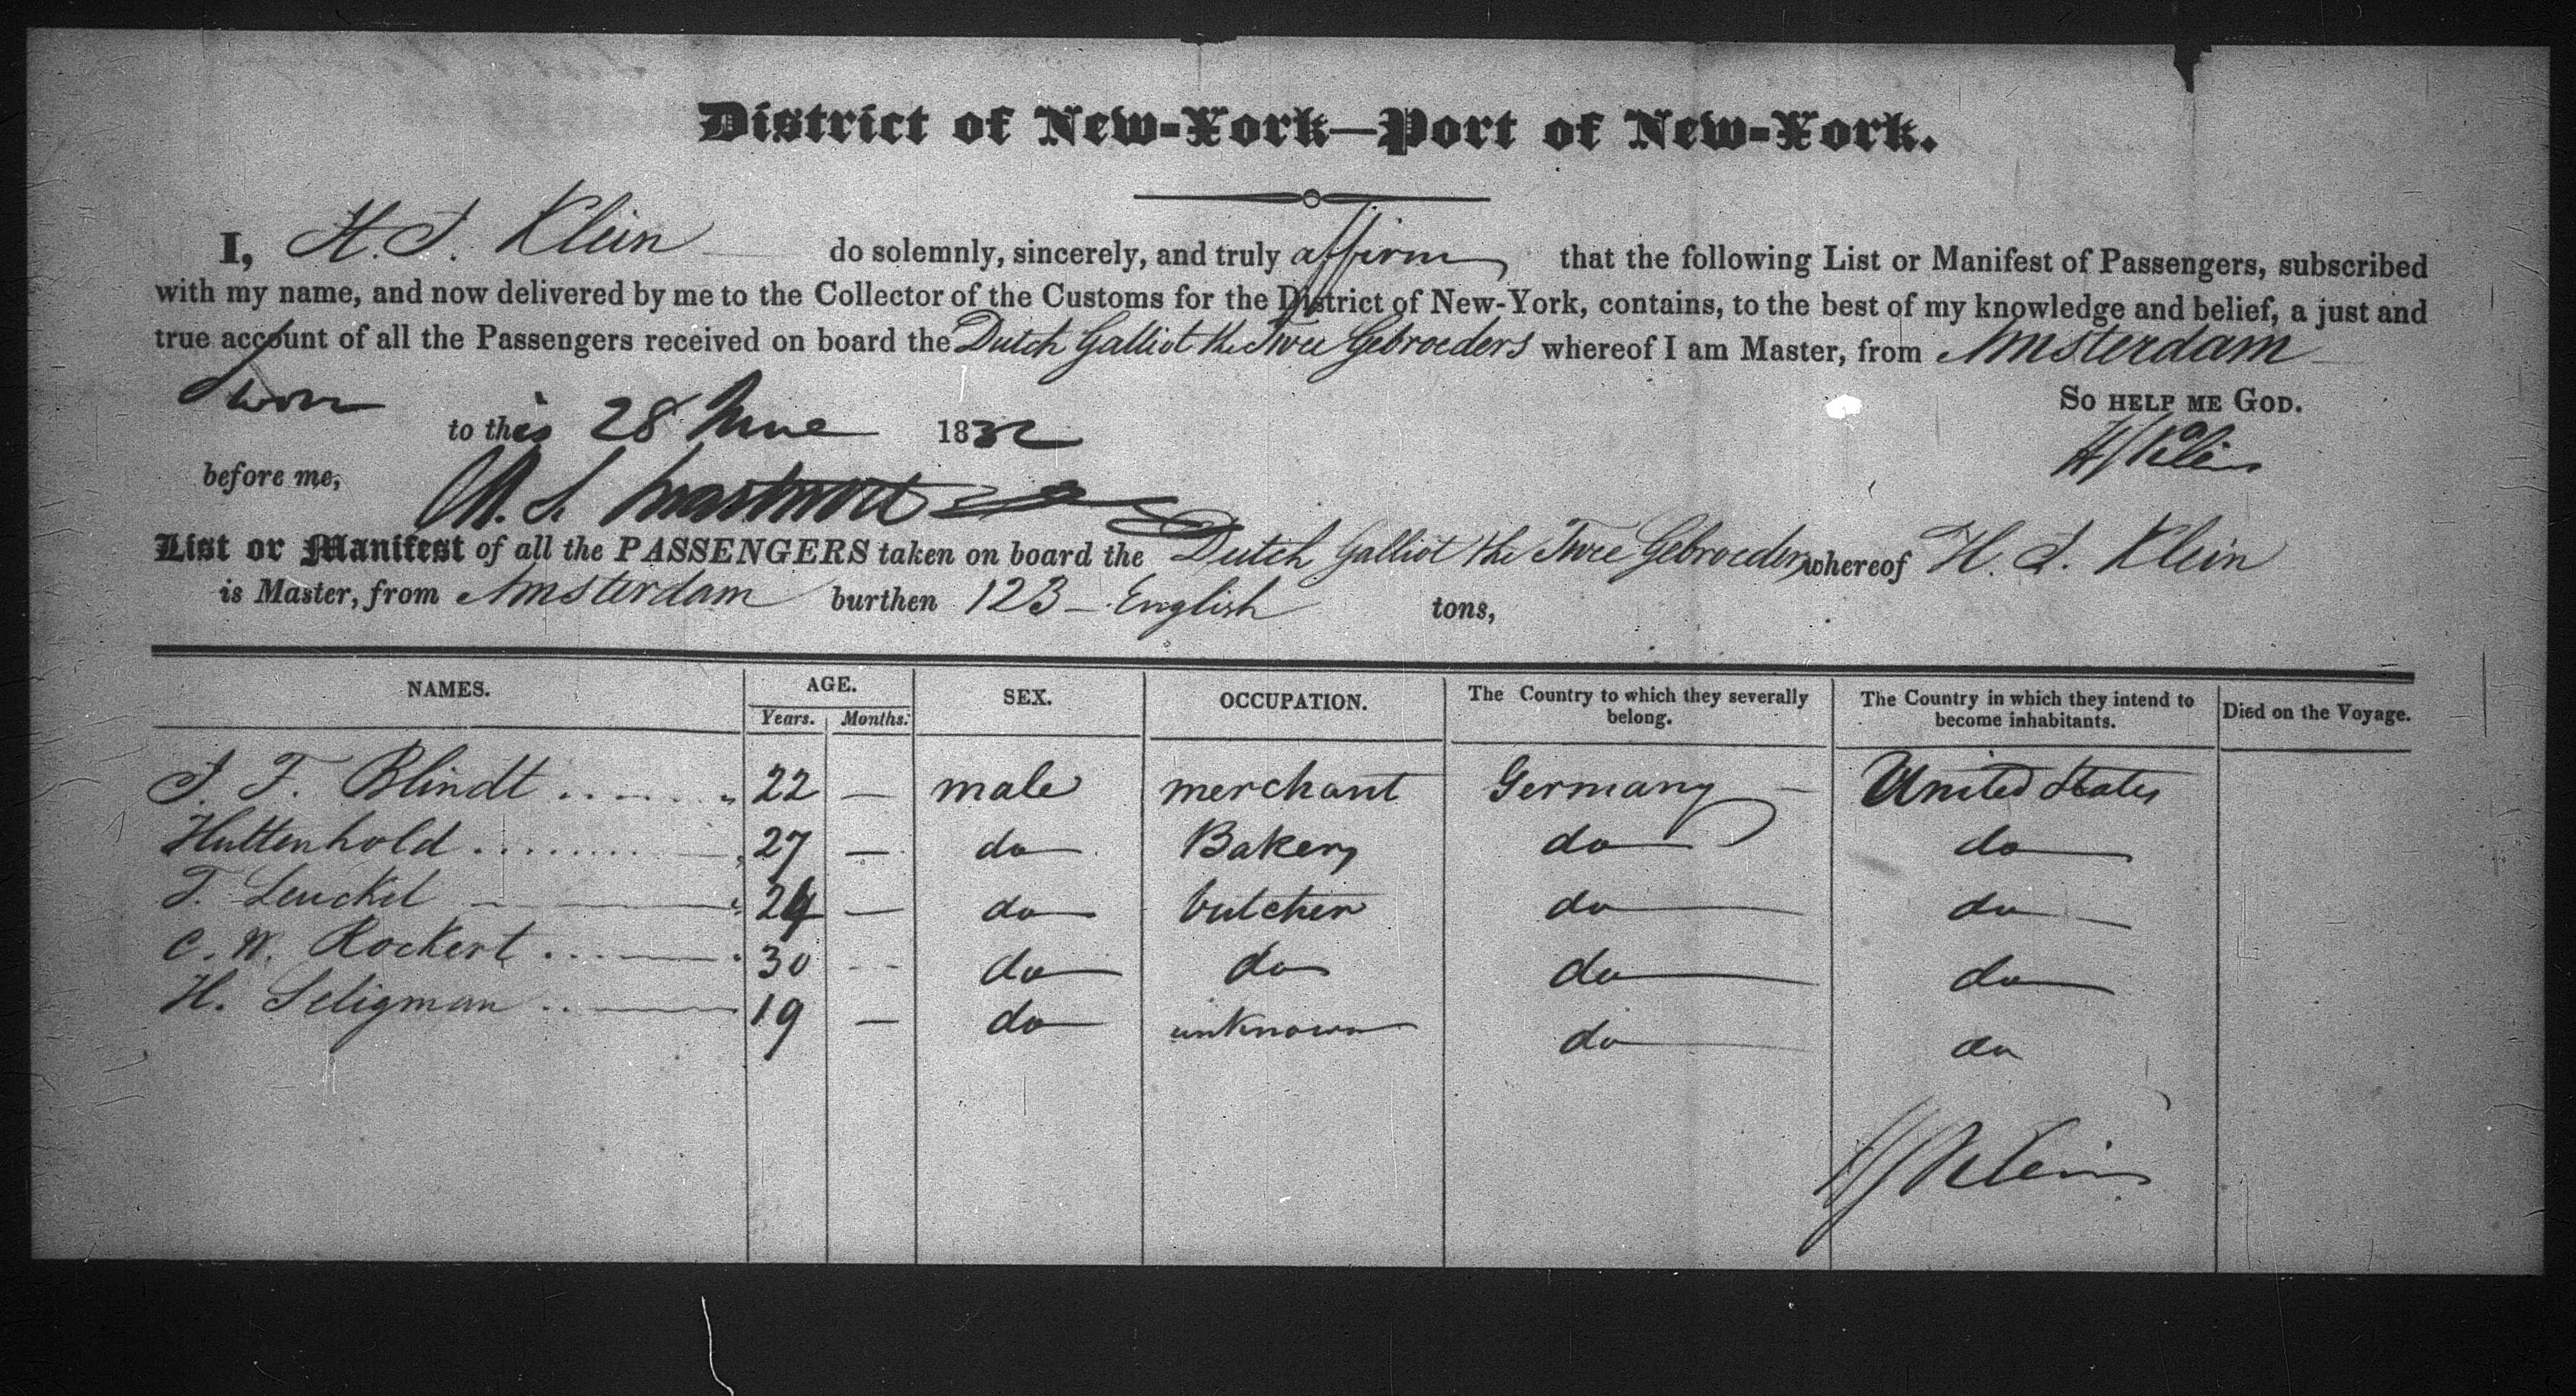 District of New-York—Port of New-York.
I, H. J. Klein do solemnly, sincerely, and truly affirm that the following List or Manifest of Passengers, subscribed
with my name, and now delivered by me to the Collector of the Customs for the District of New-York, contains, to the best of my knowledge and belief, a just and
true account of all the Passengers received on board the Dutch Galliot the Twee Gebroeders whereof I am Master, from Amsterdam
So help me God.
Sworn to this 28 June 1832
H J Klein
before me,
List or Manifest of all the PASSENGERS taken on board the Dutch Galliot the Twee Gebroeders whereof H. J. Klein
is Master, from Amsterdam burthen 123 - English tons,
NAMES. AGE. Years. Months. SEX. OCCUPATION. The Country to which they severally belong. The Country in which they intend to become inhabitants. Died on the Voyage.
J. F. Blindt 22 — male merchant Germany United States
Huttenhold 27 — do Baker do do
T. Leuckel 24 — do butcher do do
C. W. Rockert 30 — do do do do
H. Seligman 19 — do unknown do do
H J Klein